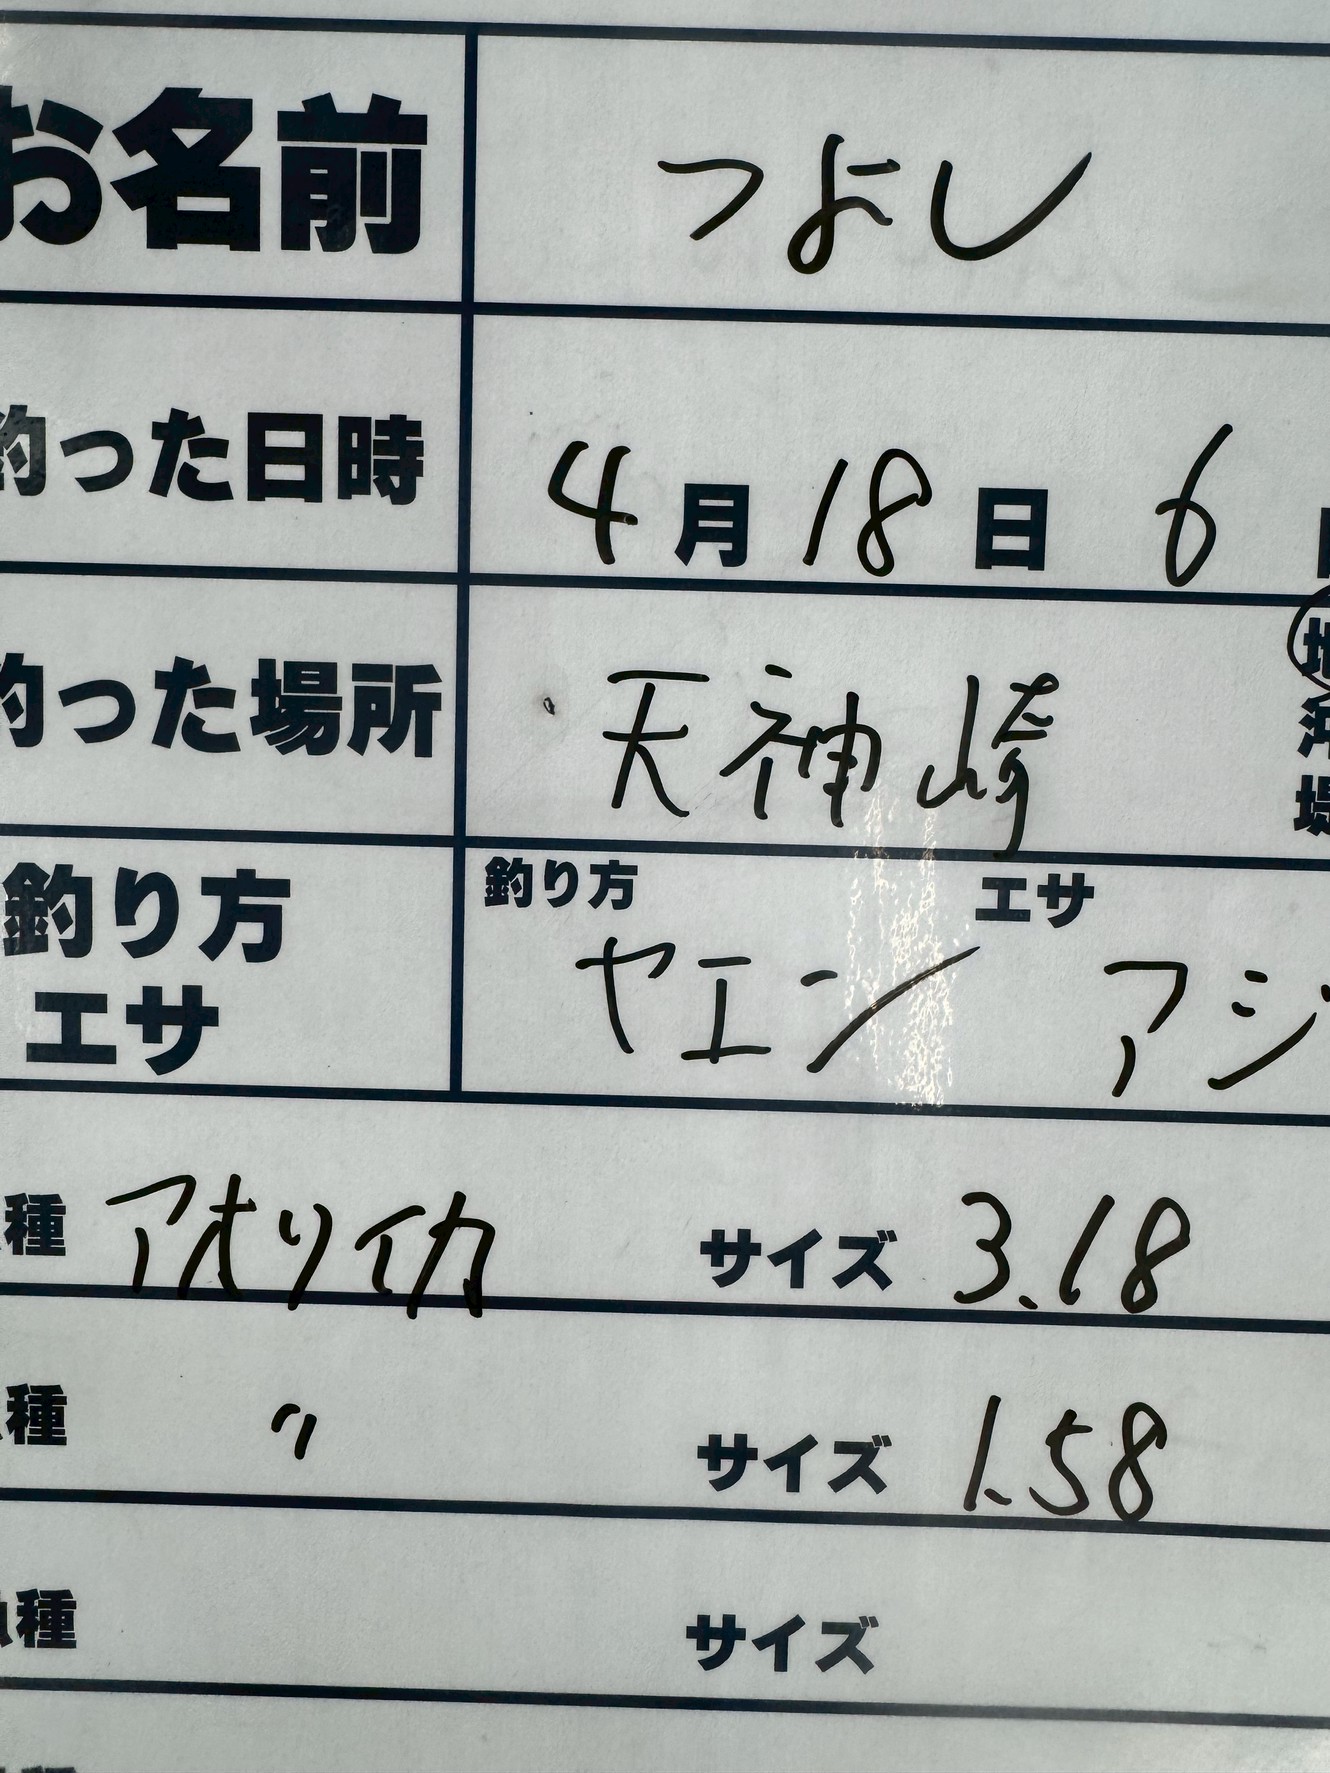 お名前 つよし
釣った日時 4月18日 6
釣った場所 天神崎 地
沖
堤
釣り方 エサ
釣り方 ヤエン エサ アジ
種 アオリイカ サイズ 3.18
種 〃 サイズ 1.58
魚種 サイズ